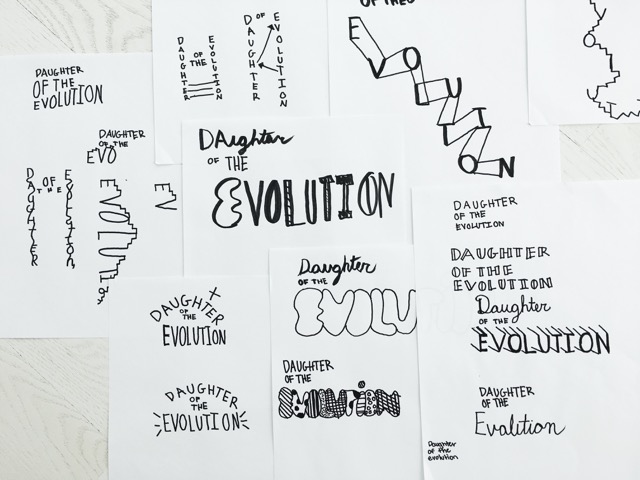 DAUGHTER
OF THE
EVOLUTION
DAUGHTER
OF THE
EVO
DAUGHTER
OF THE
EVOLUTION
EVOLUTION
EV
DAUGHTER
OF THE
EVOLUTION
DAUGHTER
OF
EVOLUTION
OF THE
EVOLUTION
O
DAughter
OF THE
EVOLUTION
DAUGHTER
OF THE
EVOLUTION
DAUGHTER
OF THE
EVOLUTION
Daughter
OF THE
EVOLU
DAUGHTER
OF THE
EVOLUTION
DAUGHTER
OF THE
EVOLUTION
DAUGHTER
OF THE
EVOLUTION
Daughter
OF THE
EVOLUTION
DAUGHTER
OF THE
Evolution
Daughter
of the
evolution